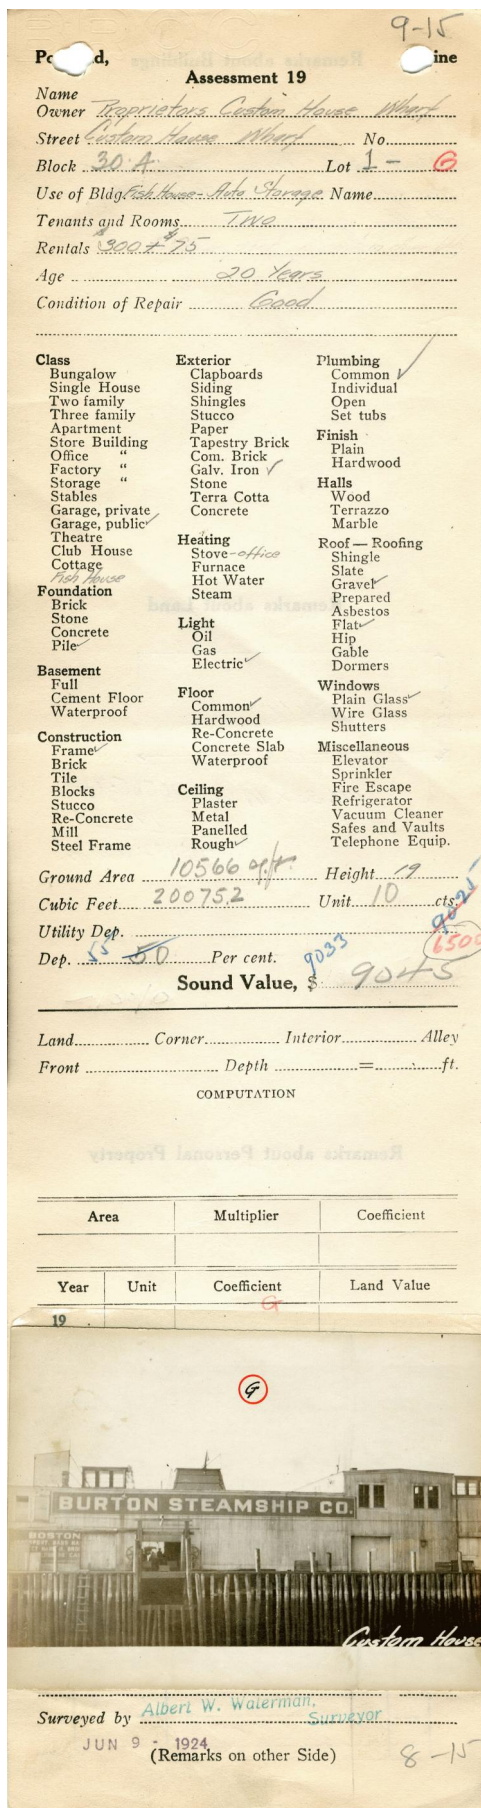 9-15
Po d, ine
Assessment 19
Name
Owner Proprietors Custom House Wharf
Street Custom House Wharf No.
Block 30-A Lot 1 - G
Use of Bldg. Fish House - Auto Storage Name
Tenants and Rooms Two
Rentals $300 + $75
Age 20 Years
Condition of Repair Good
Class
Bungalow
Single House
Two family
Three family
Apartment
Store Building
Office "
Factory "
Storage "
Stables
Garage, private
Garage, public ✓
Theatre
Club House
Cottage
Fish House
Foundation
Brick
Stone
Concrete
Pile ✓
Basement
Full
Cement Floor
Waterproof
Construction
Frame ✓
Brick
Tile
Blocks
Stucco
Re-Concrete
Mill
Steel Frame
Exterior
Clapboards
Siding
Shingles
Stucco
Paper
Tapestry Brick
Com. Brick
Galv. Iron ✓
Stone
Terra Cotta
Concrete
Heating
Stove - office
Furnace
Hot Water
Steam
Light
Oil
Gas
Electric ✓
Floor
Common ✓
Hardwood
Re-Concrete
Concrete Slab
Waterproof
Ceiling
Plaster
Metal
Panelled
Rough ✓
Plumbing
Common ✓
Individual
Open
Set tubs
Finish
Plain
Hardwood
Halls
Wood
Terrazzo
Marble
Roof — Roofing
Shingle
Slate
Gravel ✓
Prepared
Asbestos
Flat ✓
Hip
Gable
Dormers
Windows
Plain Glass ✓
Wire Glass
Shutters
Miscellaneous
Elevator
Sprinkler
Fire Escape
Refrigerator
Vacuum Cleaner
Safes and Vaults
Telephone Equip.
Ground Area 10566 sq. ft. Height 19
Cubic Feet 200752 Unit 10 cts.
9025
Utility Dep. 6500
Dep. 55 50 Per cent. 9033
Sound Value, $ 9045
Land Corner Interior Alley
Front Depth = ft.
COMPUTATION
Area Multiplier Coefficient
Year Unit Coefficient Land Value
G
19
G
BURTON STEAMSHIP CO.
BOSTON
Custom House
Surveyed by Albert W. Waterman,
Surveyor
JUN 9 - 1924
(Remarks on other Side)
8-15